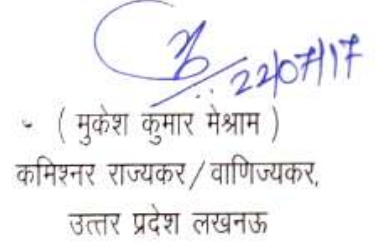 22/07/17
( मुकेश कुमार मेश्राम )
कमिश्नर राज्यकर / वाणिज्यकर,
उत्तर प्रदेश लखनऊ